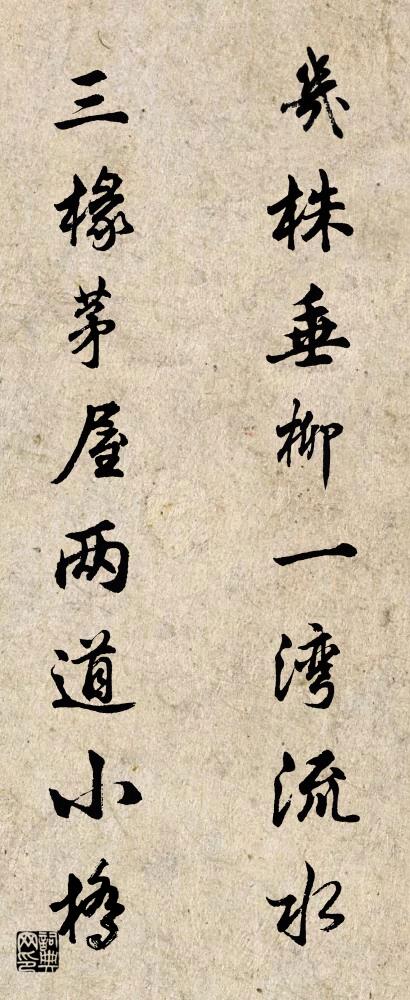 幾株垂柳一湾流水
三椽茅屋两道小橋
詞典网印